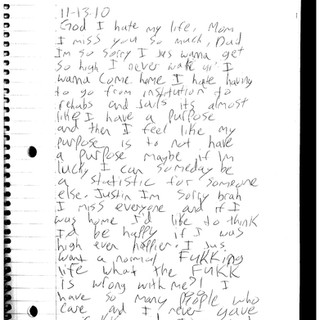 11-13-10
God I hate my life, Mom
I miss you so much, Dad
Im so sorry I jus wanna get
so high I never wake up I
wanna come home I hate having
to go from institution to
rehabs and jails its almost
like I have a purpose
and then I feel like my
purpose is to not have
a purpose maybe if im
lucky I can someday be
a statistic for someone
else. Justin Im sorry brah
I miss everyone and if I
was home I'd like to think
I'd be happy if I was
high even happier. I jus
want a normal FuKKing
life what the FuKK
is wrong with me?! I
have so many people who
care and I never gave